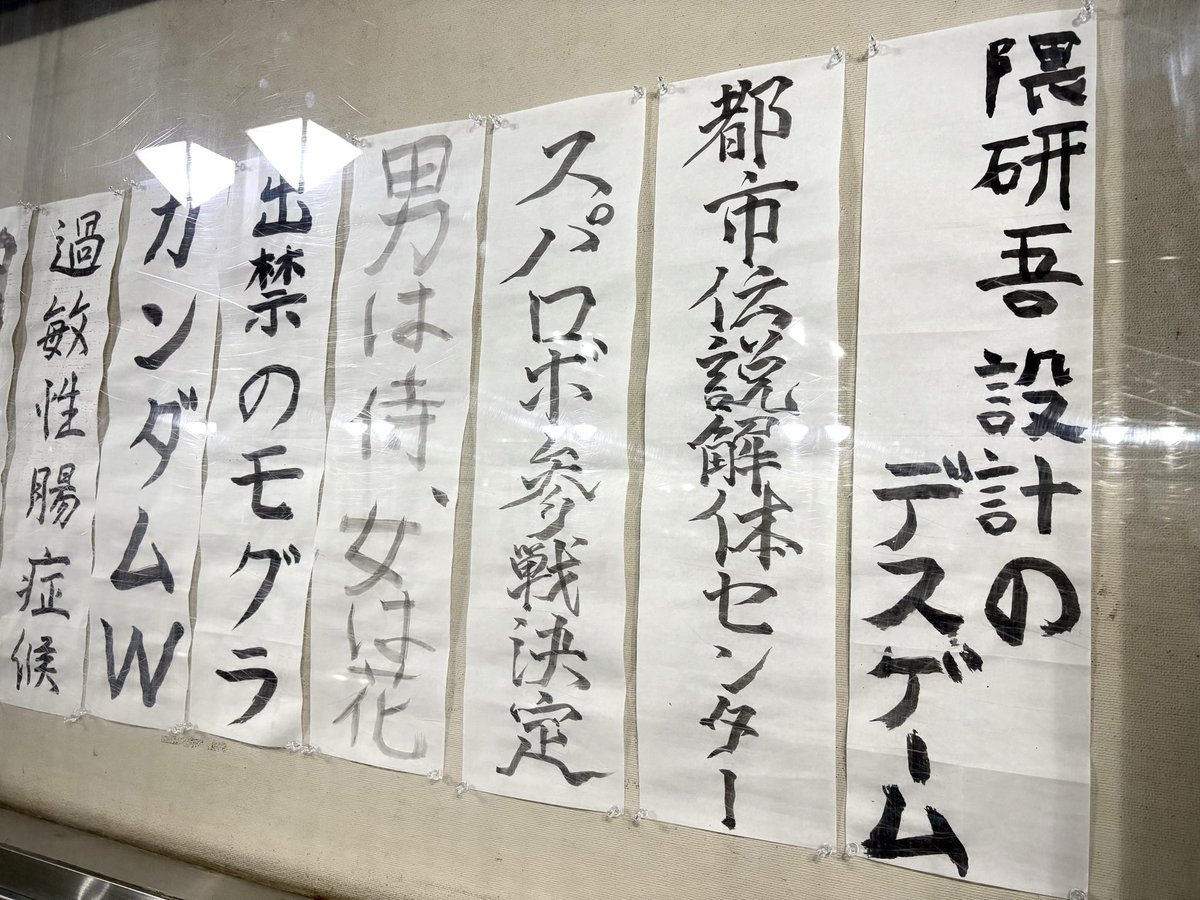 隈研吾設計の
デスゲーム
都市伝説解体センター
スパロボ参戦決定
男は侍、女は花
出禁のモグラ
ガンダムW
過敏性腸症候